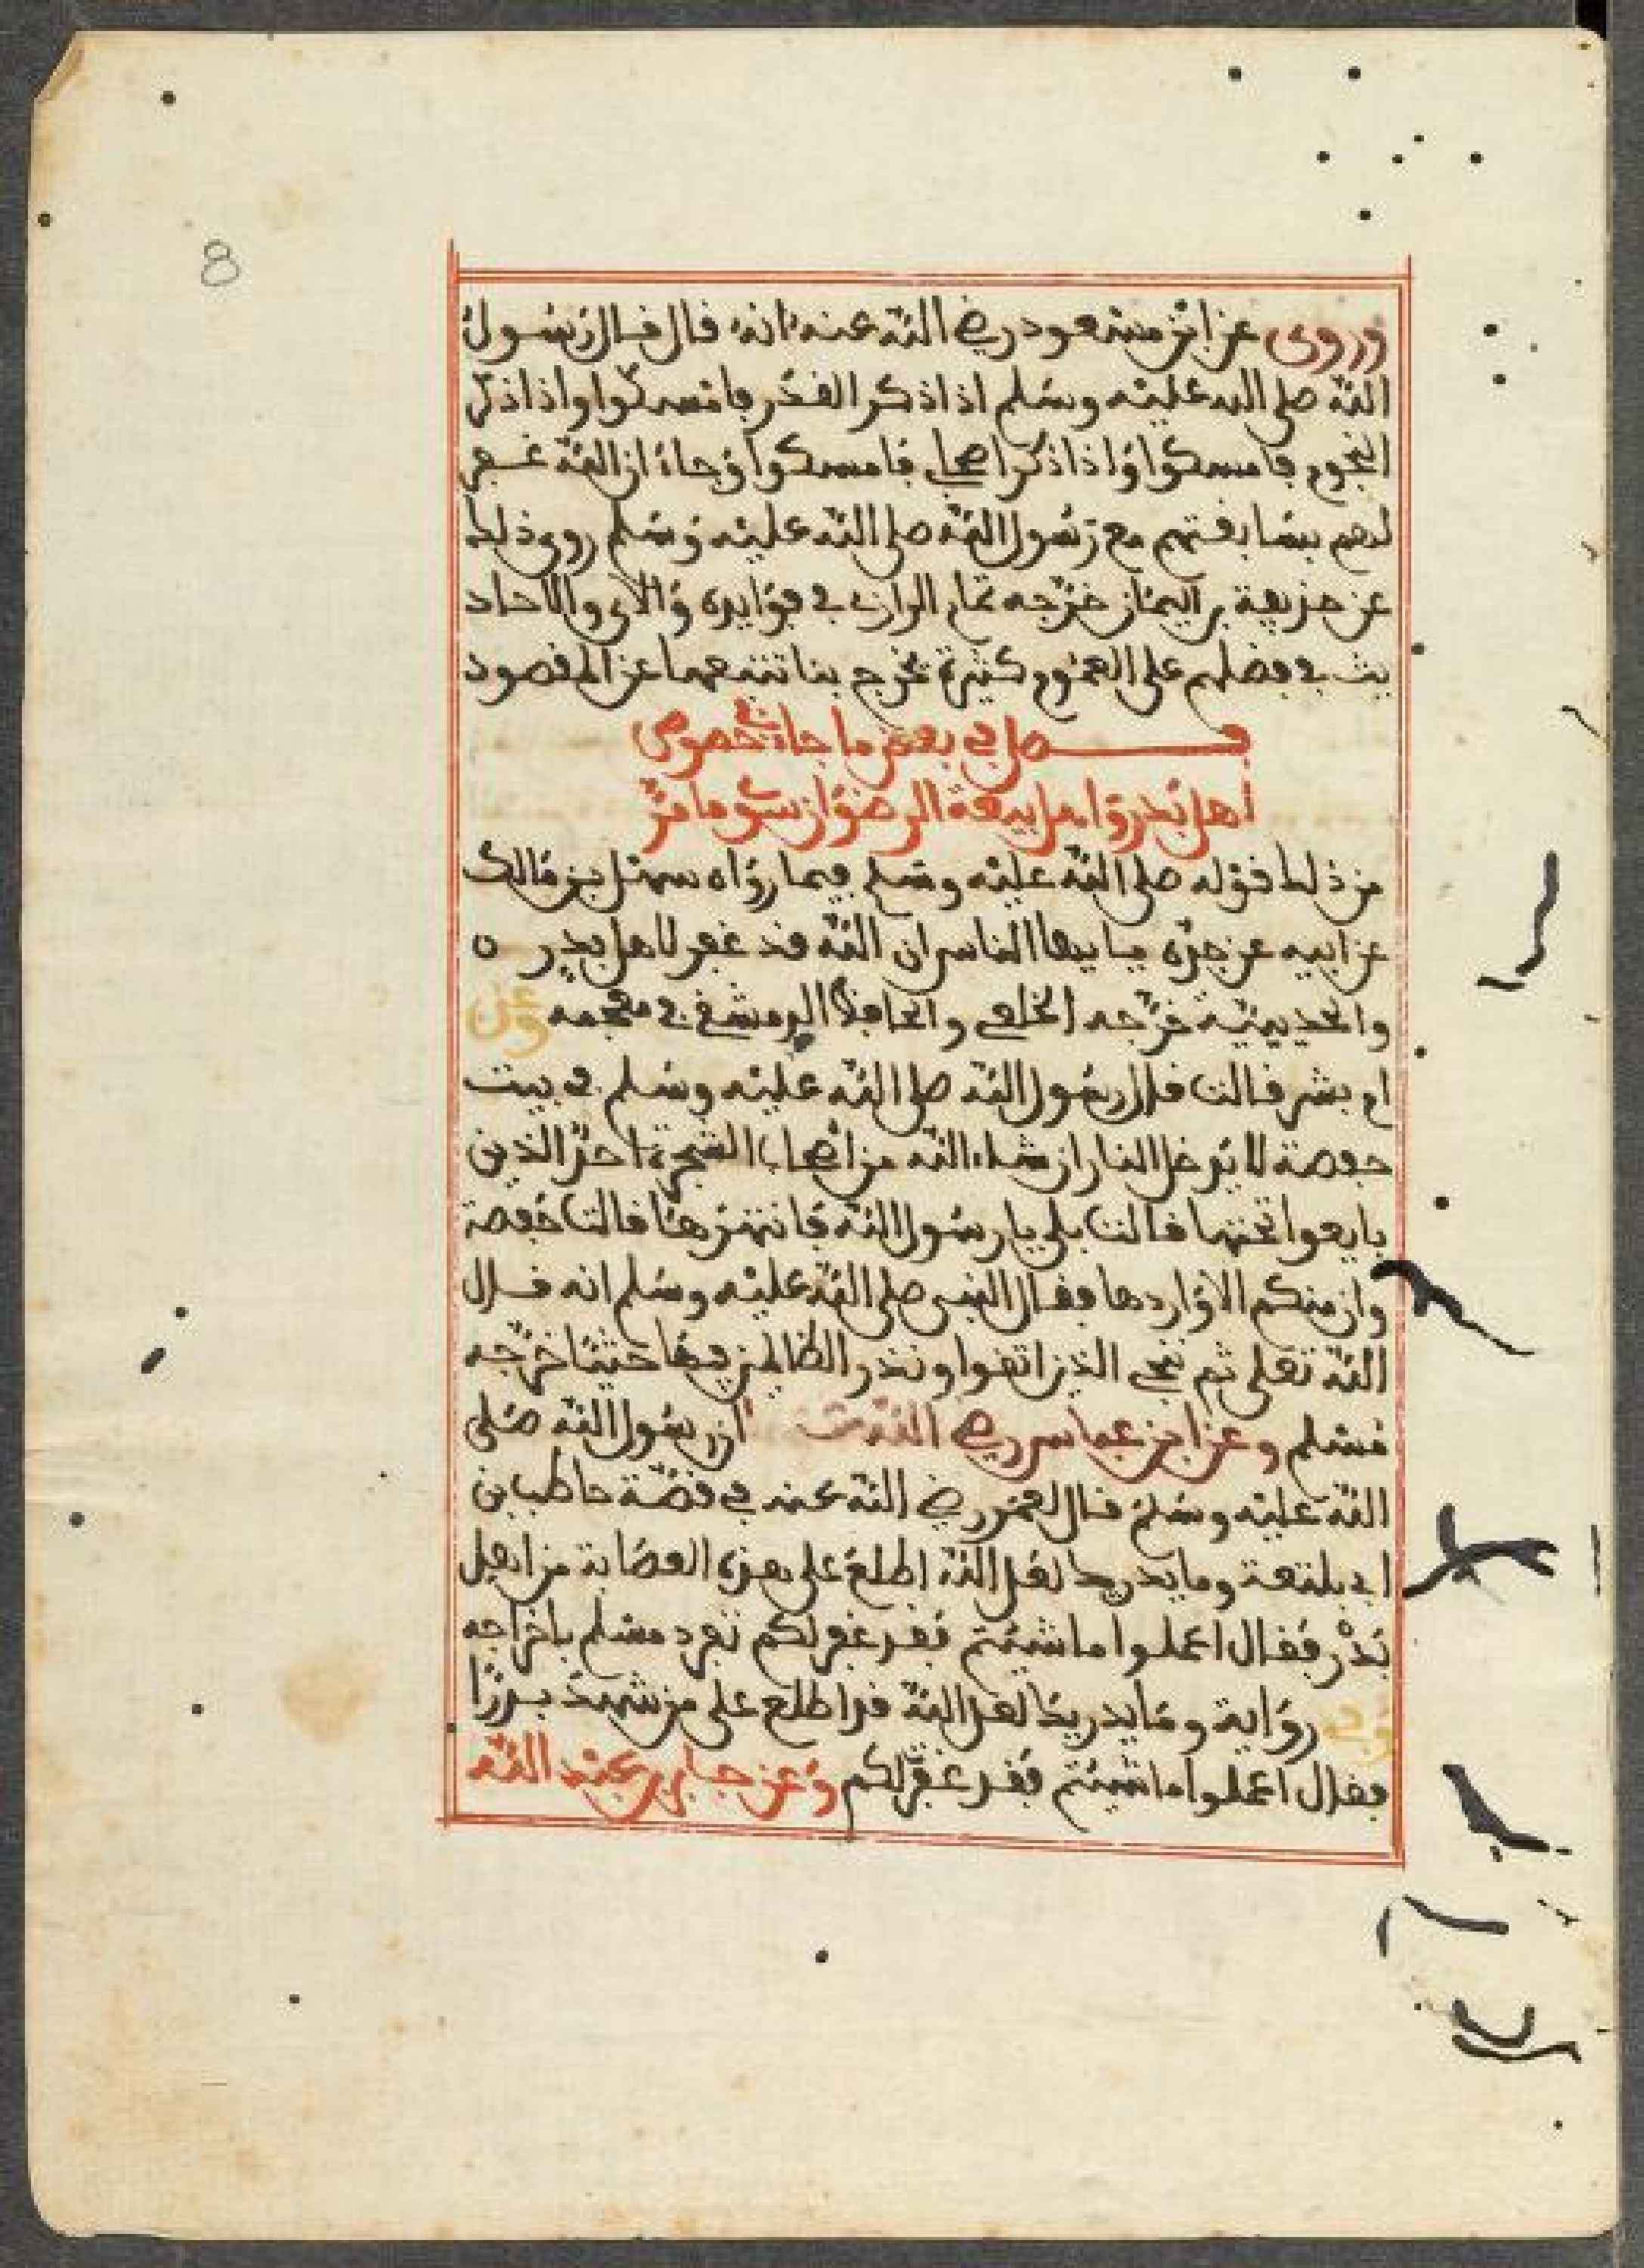 8
وروى عن ابن مسعود رضي الله عنه انه قال قال رسول
الله صلى الله عليه وسلم اذا ذكر القدر فامسكوا واذا ذكر
النجوم فامسكوا واذا ذكر اصحابي فامسكوا وجاء ان الله غفر
لهم بسابقتهم مع رسول الله صلى الله عليه وسلم روى ذلك
عن حذيفة بن اليمان خرجه تمام الرازي في فوايده والاى والاحاد
يث في فضلهم على العموم كثيرة تخرج بنا تتبعها عن المقصود
فصل في بعض ما جاء في خصوص
اهل بدر واهل بيعة الرضوان سوى ما مر
من ذلك قوله صلى الله عليه وسلم فيما رواه سهل بن مالك
عن ابيه عن جده يا ايها الناس ان الله قد غفر لاهل بدر
والحديبية خرجه الخلعي والحافظ الدمشقي في معجمه وعن
ام بشر قالت قال رسول الله صلى الله عليه وسلم في بيت
حفصة لا يدخل النار ان شاء الله من اصحاب الشجرة احد الذين
بايعوا تحتها قالت بلى يا رسول الله فانتهرها فقالت حفصة
وان منكم الا واردها فقال النبي صلى الله عليه وسلم انه قال
الله تعلى ثم ننجي الذين اتقوا ونذر الظالمين فيها جثيا خرجه
مسلم وعن ابن عباس رضي الله ان رسول الله صلى
الله عليه وسلم قال لعمر رضي الله عنه في قصة حاطب بن
ابي بلتعة وما يدريك لعل الله اطلع على هذه العصابة من اهل
بدر فقال اعملوا ما شيتم فقد غفر لكم تفرد مسلم باخراجه
وفي رواية وما يدريك لعل الله قد اطلع على من شهد بدرا
فقال اعملوا ما شيتم فقد غفر لكم وعن جابر بن عبد الله